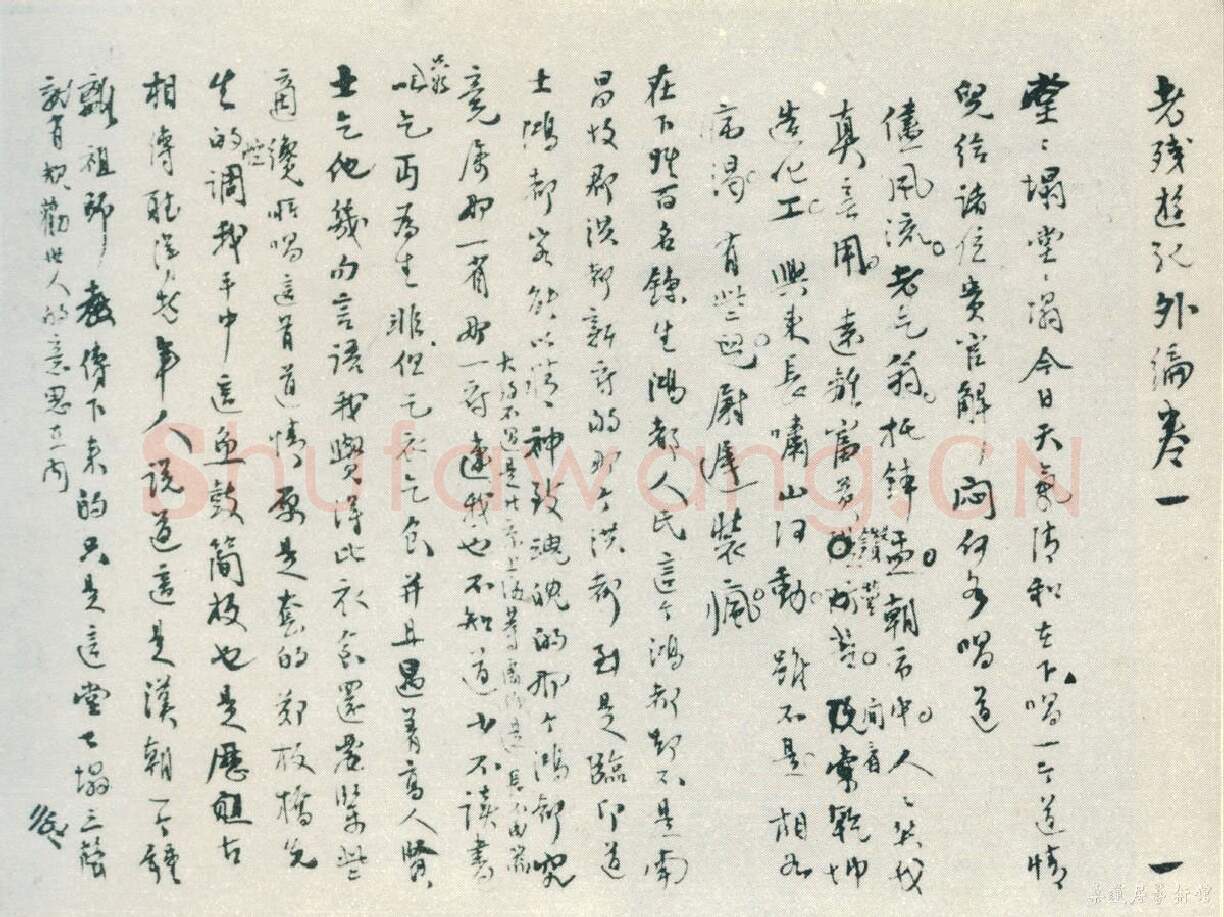 老殘遊記外編卷一 一
堂〻塌堂〻塌今日天氣清和在下唱一个道情
兒給諸位貴官解〻悶何如唱道
儘風流。老乞翁。托鉢盂。朝市中。人〻笑我
真無用。遠離富貴
造化工。興來長嘯山河動。雖不是相如
病渴。有些兒尉遲裝瘋。
在下姓百名鍊生鴻都人氏這个鴻都却不是南
昌故郡洪都新府的那个洪都到是臨邛道
士鴻都客能以精神致魂魄的那个鴻都究
竟屬那一省那一府連我也不知道少不讀書
大約不過是
乞丐為生非但乞衣乞食并且遇着高人賢
士乞他幾句言語我覺得比衣食還要緊些
適纔所唱這首道情原是套的鄭板橋先
生的調我手中這魚鼓簡板也是歷祖古
相傳聽得老年人說道這是漢朝一个鍾
離祖師教傳下來的只是這堂〻塌三聲
就有勸世人的意思在內
Shufawang.CN